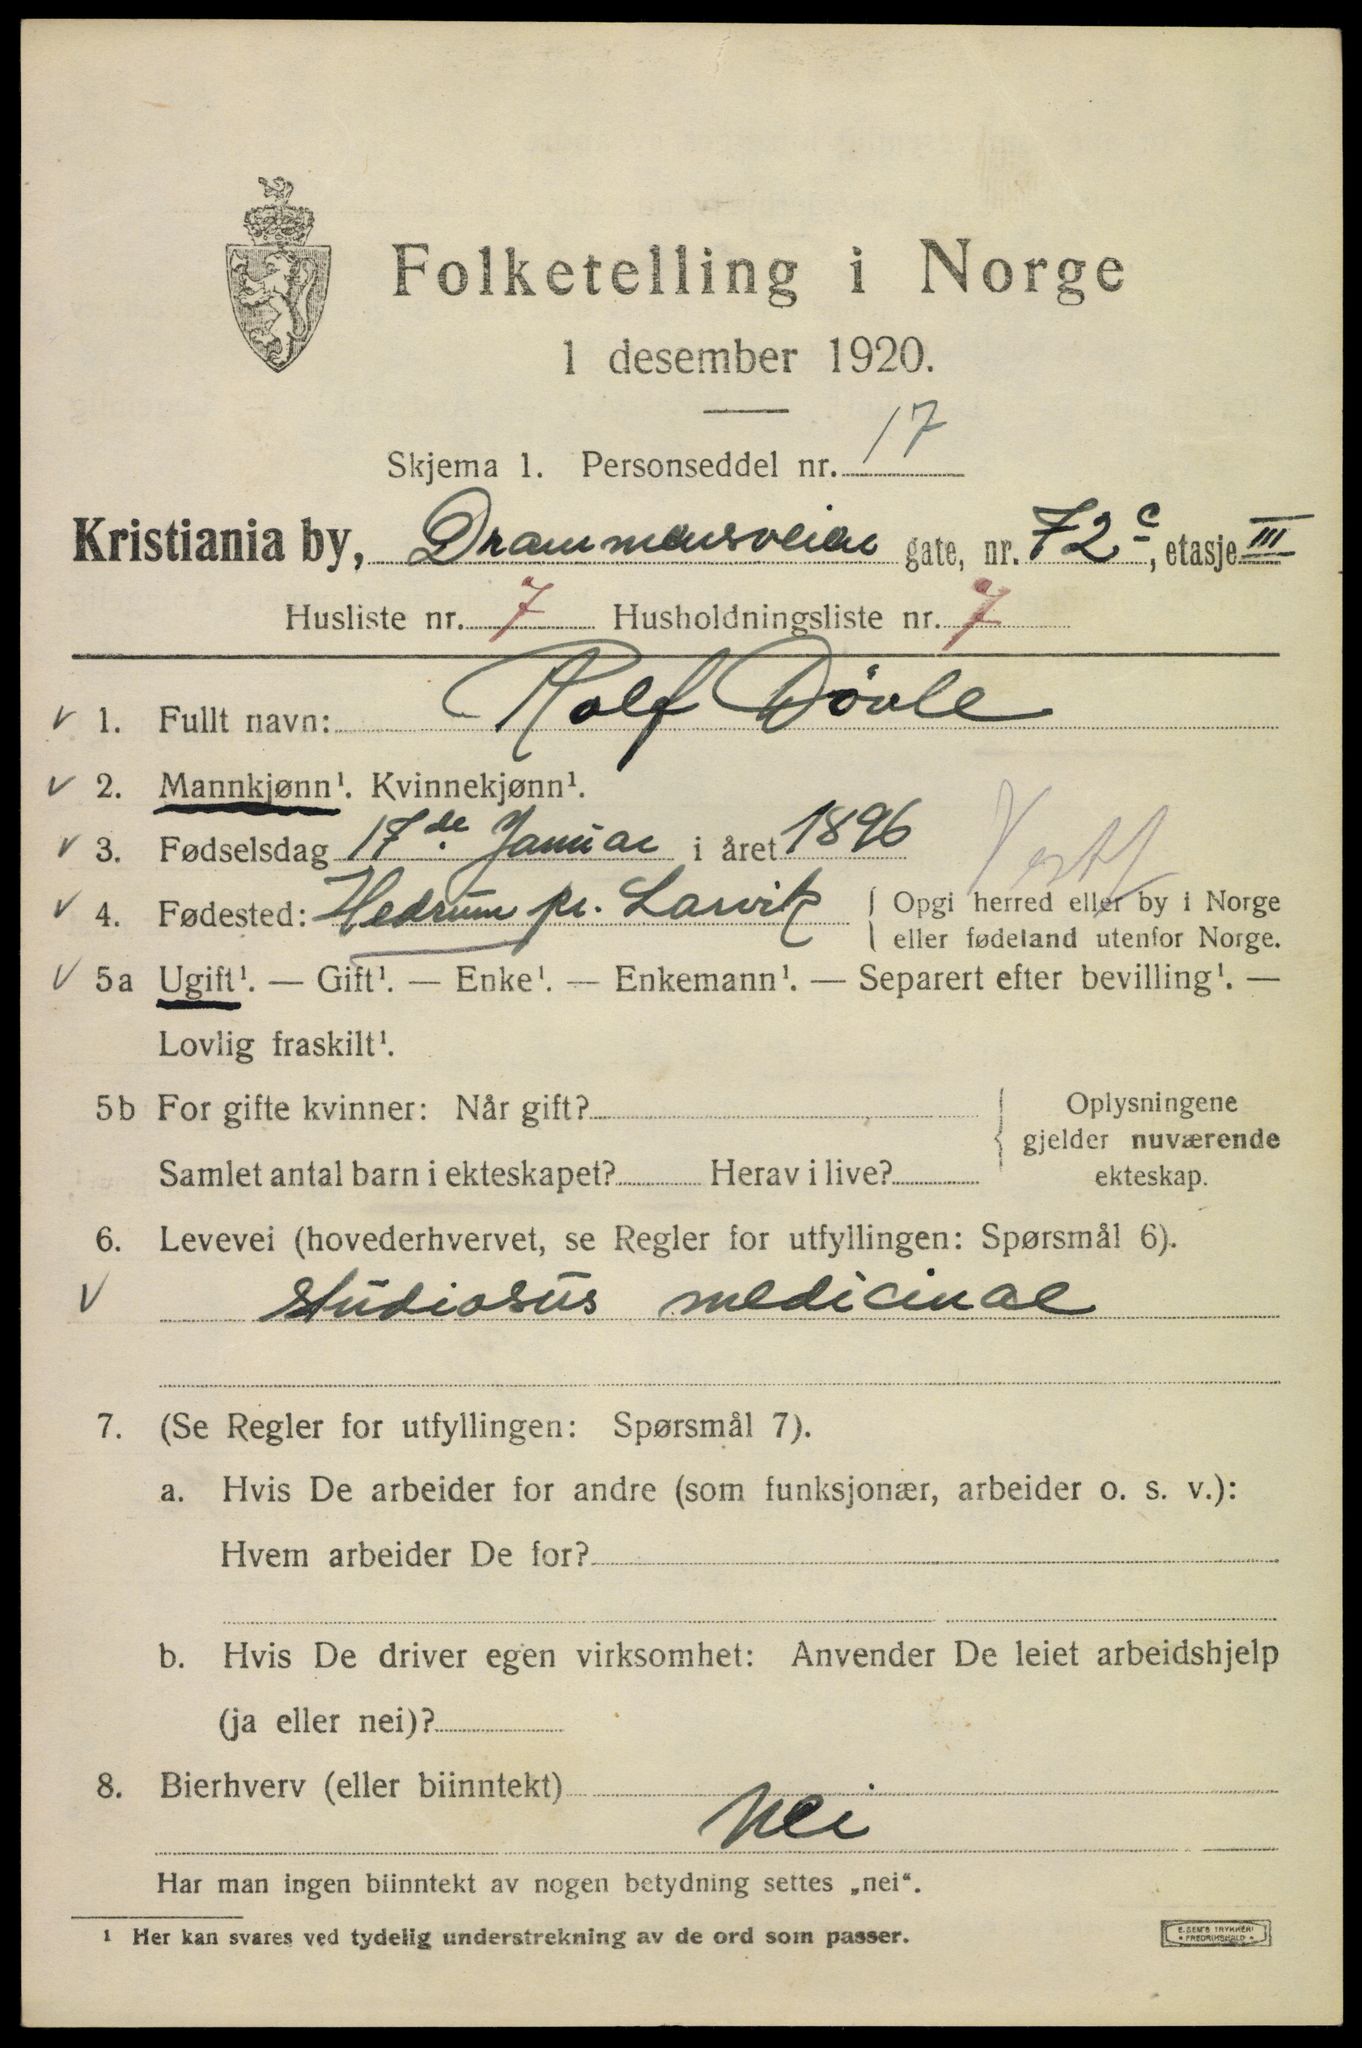 Folketelling i Norge
1 desember 1920.
Skjema 1. Personseddel nr. 17
Kristiania by, Drammensveien gate, nr. 72c, etasje III
Husliste nr. 7 Husholdningsliste nr. 7
v 1. Fullt navn: Rolf Døvle
v 2. Mannkjønn¹. Kvinnekjønn¹.
v 3. Fødselsdag 17de. Januar i året 1896
Vestf
v 4. Fødested: Hedrum pr. Larvik { Opgi herred eller by i Norge
eller fødeland utenfor Norge.
v 5a Ugift¹. — Gift¹. — Enke¹. — Enkemann¹. — Separert efter bevilling¹. —
Lovlig fraskilt¹.
5b For gifte kvinner: Når gift?
Samlet antal barn i ekteskapet? Herav i live?
{ Oplysningene
gjelder nuværende
ekteskap.
6. Levevei (hovederhvervet, se Regler for utfyllingen: Spørsmål 6).
v studiosus medicinae
7. (Se Regler for utfyllingen: Spørsmål 7).
a. Hvis De arbeider for andre (som funksjonær, arbeider o. s. v.):
Hvem arbeider De for?
b. Hvis De driver egen virksomhet: Anvender De leiet arbeidshjelp
(ja eller nei)?
8. Bierhverv (eller biinntekt)
Nei
Har man ingen biinntekt av nogen betydning settes „nei“.
¹ Her kan svares ved tydelig understrekning av de ord som passer.
E. SEM'S TRYKKERI
• FREDRIKSHALD •